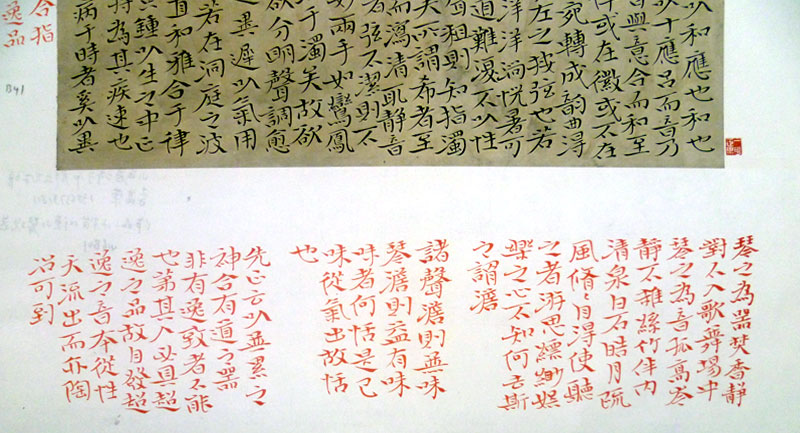 以和應也和也
以十應呂而音乃
與意合而和至
作或在徽或不在
宛轉成韻曲得
左之按弦也若
洋洋淌恍暑可
道難復不以性
聲粗則知指濁
矣所謂希者至
而瀉清耽靜音
者弦不潔則不
兩手如鸞鳳
于濁矣故欲
欲分明聲調愈
異遲以氣用
若在洞庭之波
直和雅合于律
黃鍾以生之中正
持為其〻疾速也
病于時者奚以異
合指
逸品
B41
琴之為器焚香靜
對不入歌舞場中
琴之為音孤高岑
靜不雜絲竹伴內
清泉白石皓月疏
風翛〻自得使聽
之者游思縹緲娛
樂之心不知何去斯
之謂澹
諸聲澹則無味
琴澹則益有味
味者何恬是已
味從氣出故恬
也
先正云以無累之
神合有道之器
非有逸致者不能
也第其人必具超
逸之品故自發超
逸之音本從性
天流出而亦陶
冶可到